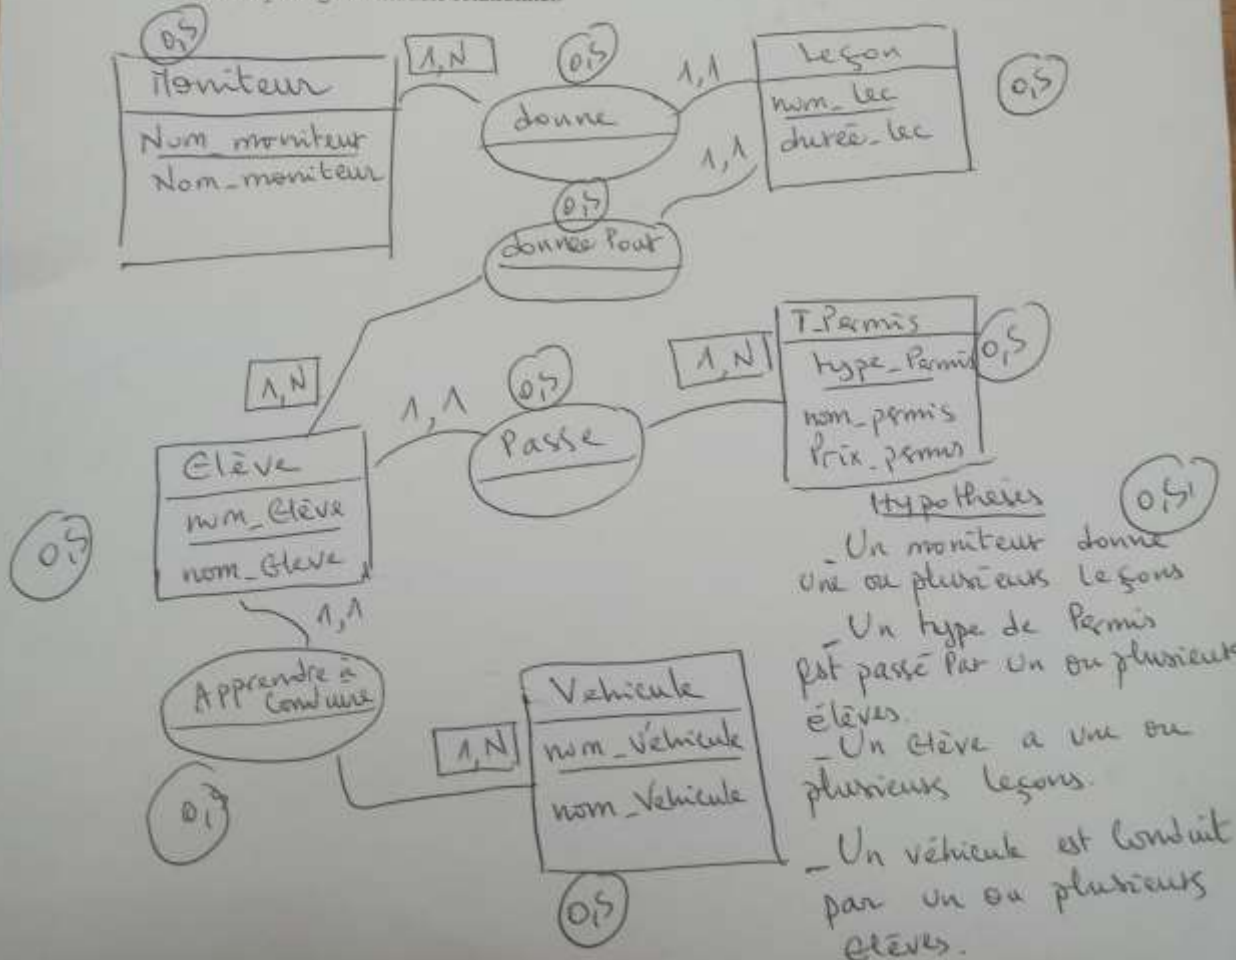 0,5
Moniteur
Num_moniteur
Nom_moniteur
1,N
0,5
donne
1,1
Leçon
num_lec
durée_lec
0,5
1,1
0,5
donnée Pour
1,N
1,1
0,5
Passe
1,N
T_Permis
type_Permis
nom_permis
Prix_permis
0,5
Elève
num_Elève
nom_Eleve
0,5
1,1
Apprendre à
Conduire
0,5
1,N
Vehicule
num_Véhicule
nom_Vehicule
0,5
Hypotheses
0,5
_ Un moniteur donne
une ou plusieurs Leçons
_ Un type de Permis
est passé Par un ou plusieurs
élèves.
_ Un Elève a une ou
plusieurs leçons.
_ Un véhicule est Conduit
par un ou plusieurs
élèves.